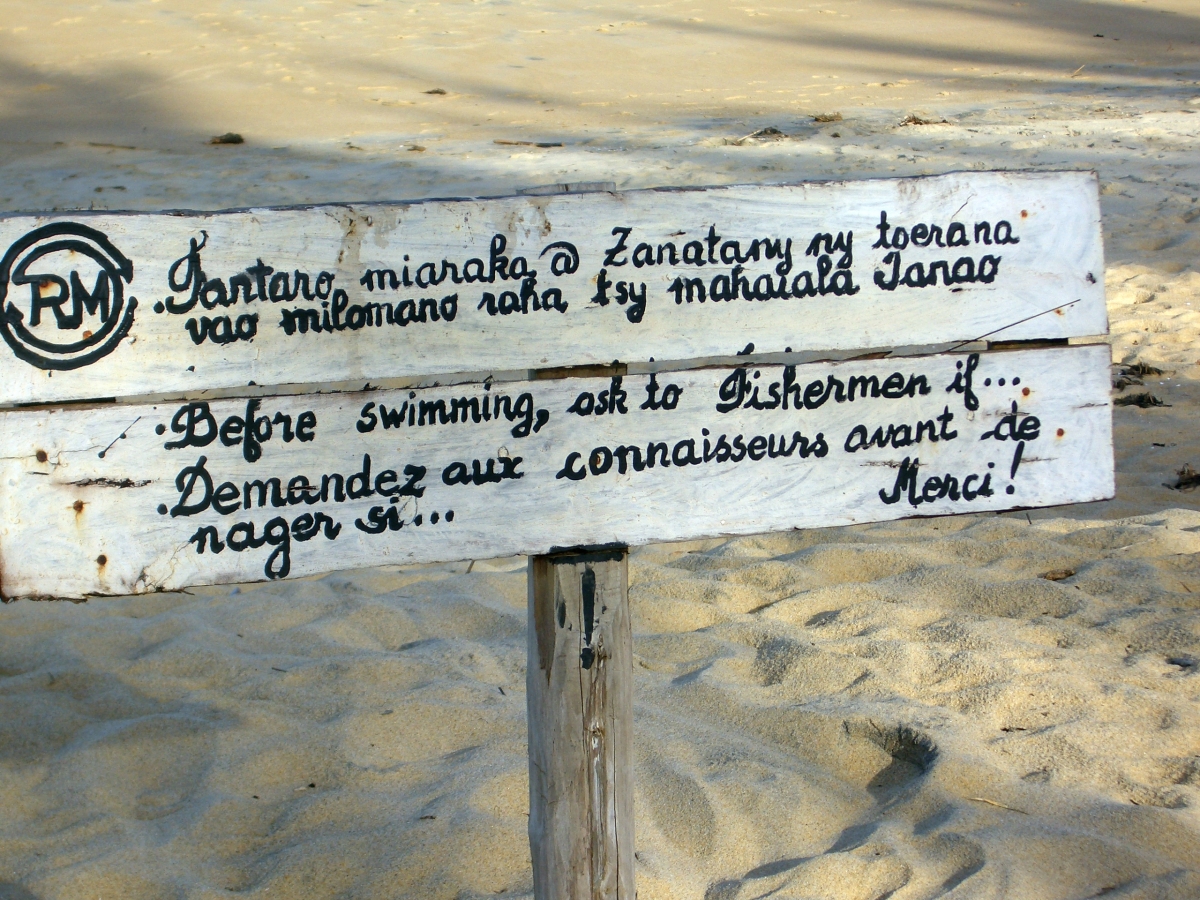 RM
.Tantaro miaraka @ Zanatany ny toerana
vao milomano raha tsy mahaiala Tanao
.Before swimming, ask to Fishermen if...
.Demandez aux connaisseurs avant de
nager si... Merci!